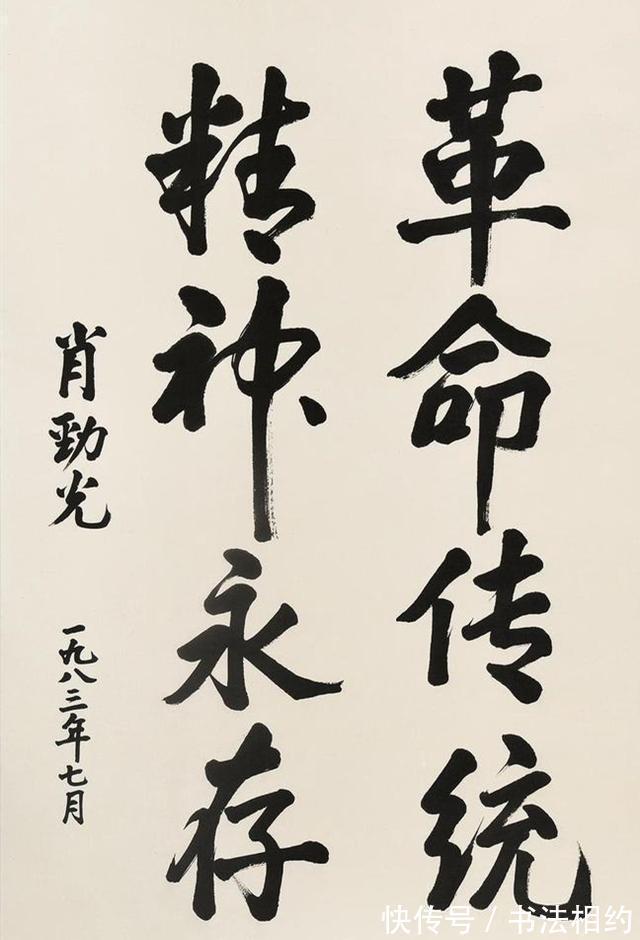 革命传统
精神永存
肖劲光
一九八三年七月
快传号/书法相约